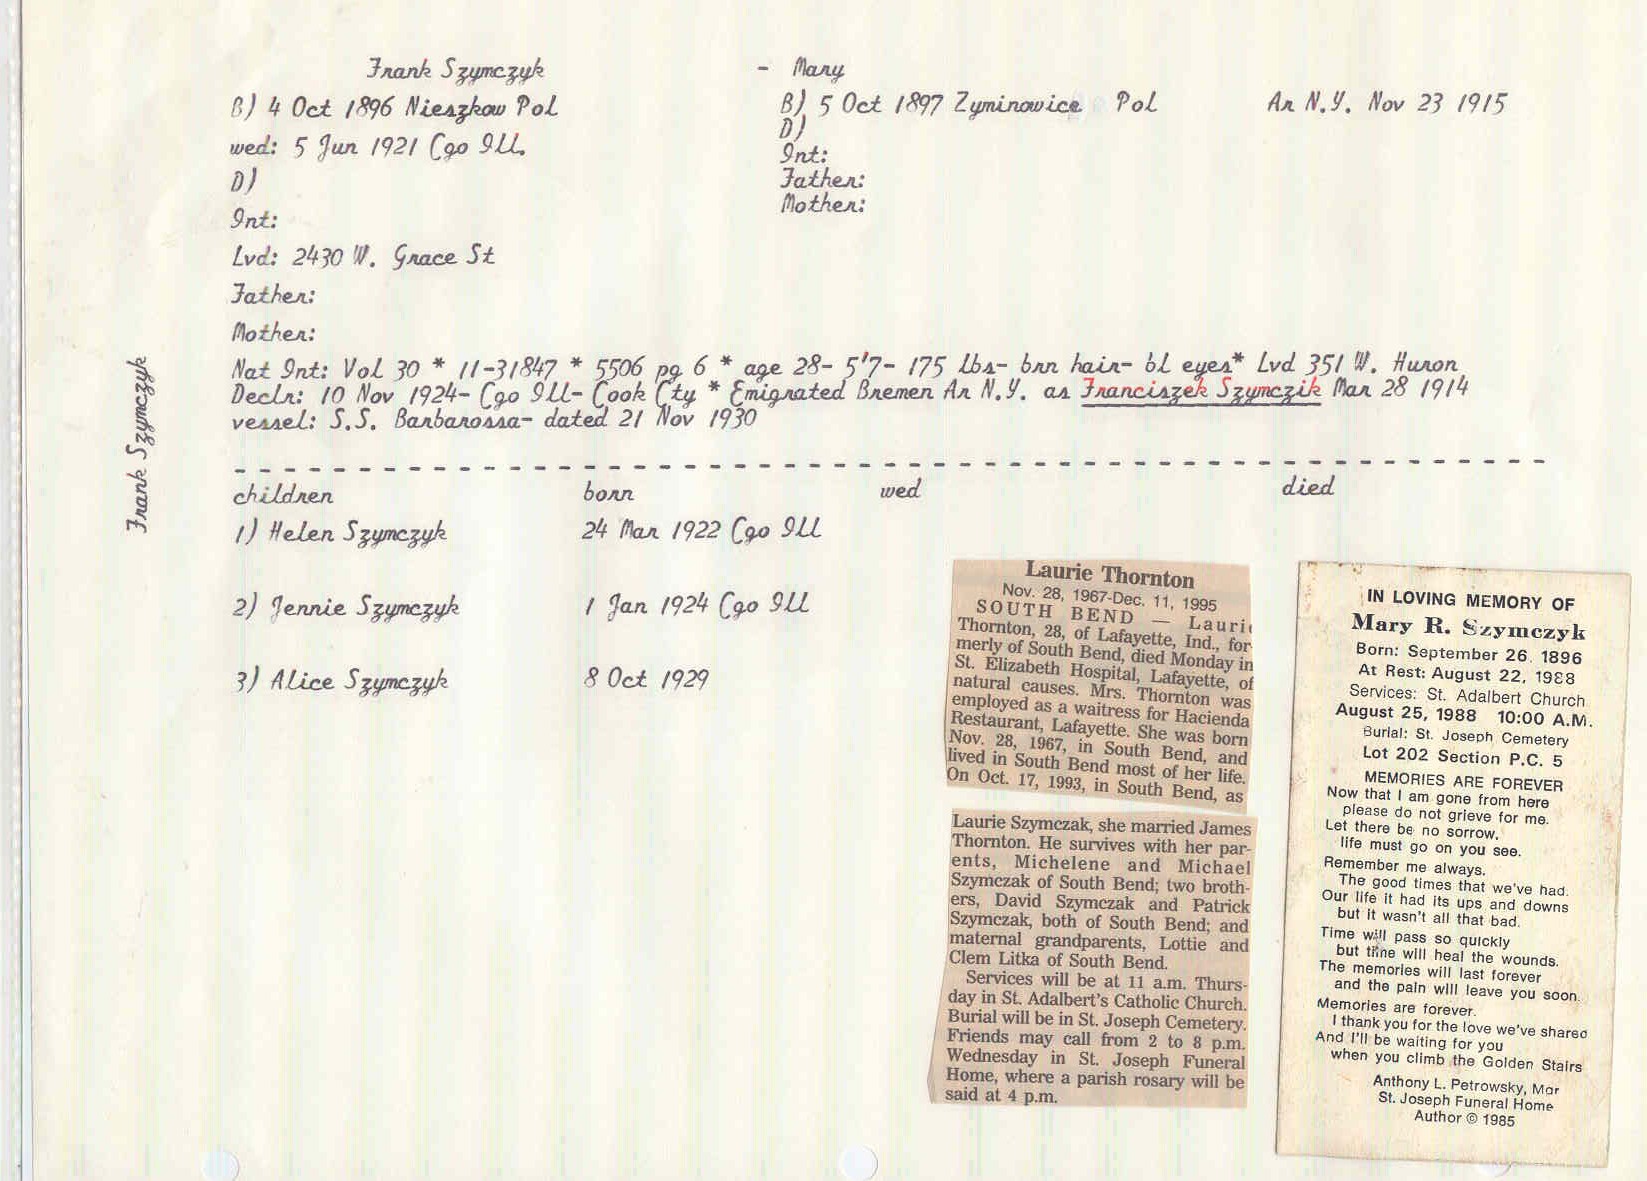 Frank Szymczyk - Mary
B) 4 Oct 1896 Nieszkow Pol
B) 5 Oct 1897 Zyminowice Pol
Ar N.Y. Nov 23 1915
D)
wed: 5 Jun 1921 Cgo Ill.
Int:
D)
Father:
Mother:
Int:
Lvd: 2430 W. Grace St
Father:
Mother:
Nat Int: Vol 30 * 11-31847 * 5506 pg 6 * age 28- 5'7- 175 lbs- brn hair- bl eyes* Lvd 351 W. Huron
Declr: 10 Nov 1924- Cgo Ill- Cook Cty * Emigrated Bremen Ar N.Y. as Franciszek Szymczik Mar 28 1914
vessel: S.S. Barbarossa- dated 21 Nov 1930
Frank Szymczyk
children born wed died
1) Helen Szymczyk 24 Mar 1922 Cgo Ill
2) Jennie Szymczyk 1 Jan 1924 Cgo Ill
3) Alice Szymczyk 8 Oct 1929
Laurie Thornton
Nov. 28, 1967-Dec. 11, 1995
SOUTH BEND — Lauri
Thornton, 28, of Lafayette, Ind., for-
merly of South Bend, died Monday in
St. Elizabeth Hospital, Lafayette, of
natural causes. Mrs. Thornton was
employed as a waitress for Hacienda
Restaurant, Lafayette. She was born
Nov. 28, 1967, in South Bend, and
lived in South Bend most of her life.
On Oct. 17, 1993, in South Bend, as
Laurie Szymczak, she married James
Thornton. He survives with her par-
ents, Michelene and Michael
Szymczak of South Bend; two broth-
ers, David Szymczak and Patrick
Szymczak, both of South Bend; and
maternal grandparents, Lottie and
Clem Litka of South Bend.
Services will be at 11 a.m. Thurs-
day in St. Adalbert's Catholic Church.
Burial will be in St. Joseph Cemetery.
Friends may call from 2 to 8 p.m.
Wednesday in St. Joseph Funeral
Home, where a parish rosary will be
said at 4 p.m.
IN LOVING MEMORY OF
Mary R. Szymczyk
Born: September 26, 1896
At Rest: August 22, 1988
Services: St. Adalbert Church
August 25, 1988 10:00 A.M.
Burial: St. Joseph Cemetery
Lot 202 Section P.C. 5
MEMORIES ARE FOREVER
Now that I am gone from here
please do not grieve for me.
Let there be no sorrow,
life must go on you see.
Remember me always.
The good times that we've had.
Our life it had its ups and downs
but it wasn't all that bad.
Time will pass so quickly
but time will heal the wounds.
The memories will last forever
and the pain will leave you soon.
Memories are forever.
I thank you for the love we've shared
And I'll be waiting for you
when you climb the Golden Stairs
Anthony L. Petrowsky, Mgr
St. Joseph Funeral Home
Author © 1985